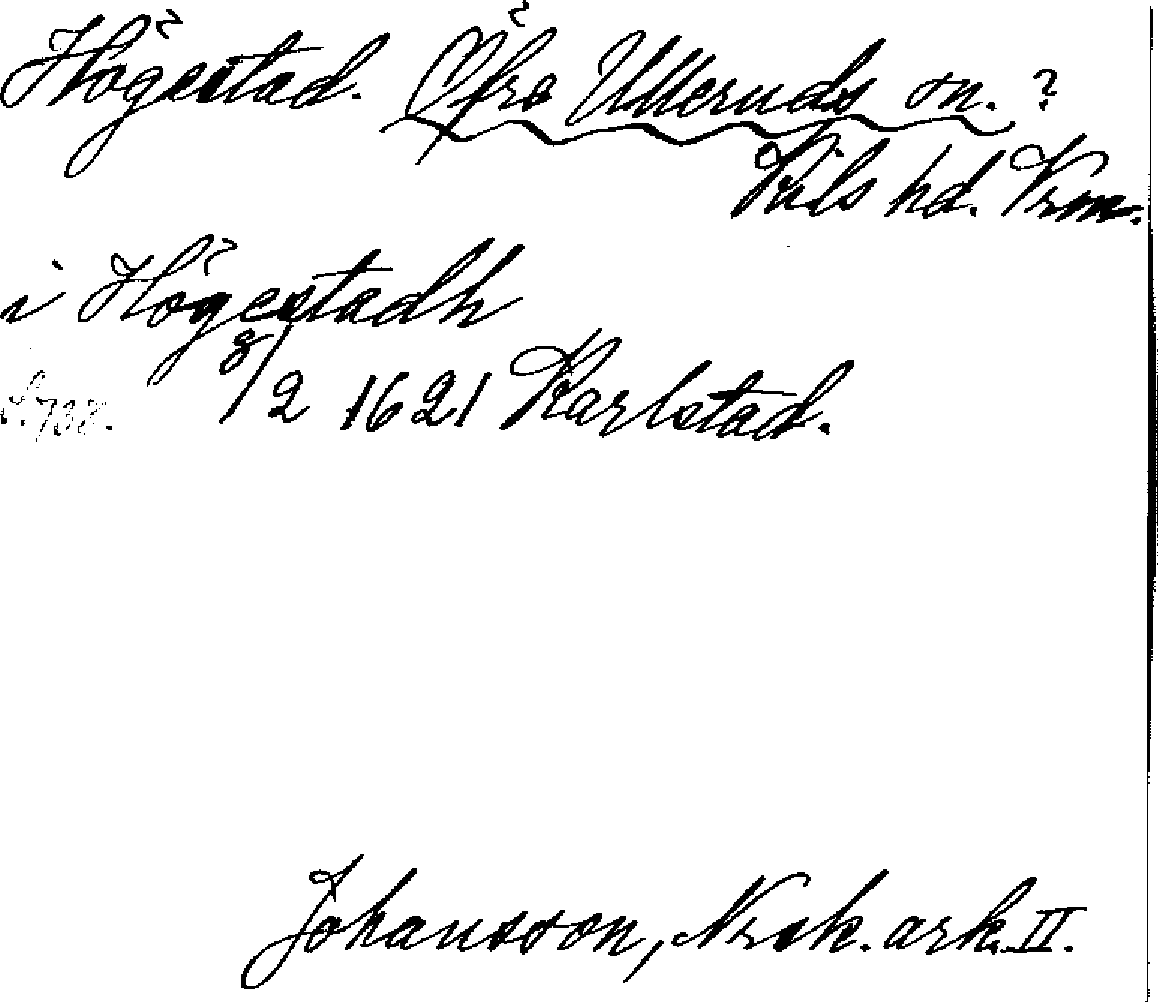 Högestad. Öfre Ulleruds sn. ?
Kils hd. Vrm.
i Högestadh
8/2 1621 Karlstad.
Johansson, Nrsk. ark. II.